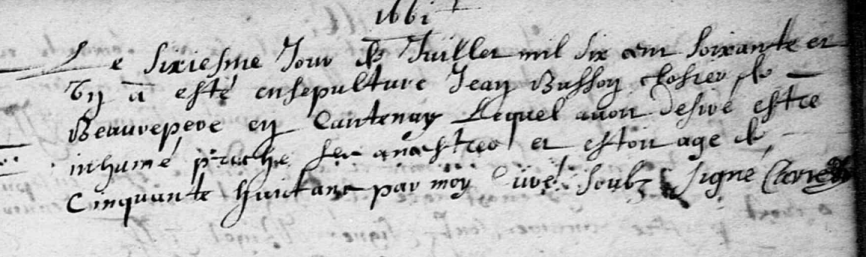 1661
Le sixiesme Jour de Juillet mil six cent soixante et
un a esté ensepulturé Jean Busson closier de
Beaurepere en Cantenay Lequel avoit desiré estre
inhumé proche ses ancestres et estoit agé de
Cinquante huit ans par moy Curé soubz signé